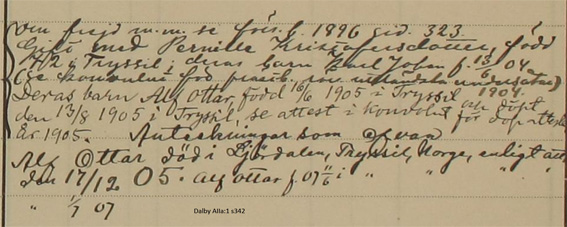 Om frejd m.m. se förs.b. 1896 sid. 323.
Gift med Pernille Kristofersdotter, född
7/2 i Trysil; deras barn Karl Johan f. 13/6 04
(se konvolut för utländska undersåtar) 1904.
Deras barn Alf Ottar, född 16/6 1905 i Trysil, döpt
den 13/8 1905 i Trysil, se attest i konvolut för dopattester
År 1905. Anteckningar som ofvan
Alf Ottar död i Ljördalen, Trysil, Norge, enligt att.
den 17/12 05. Alf Ottar f. 07 11/6 i " " "
" 1/7 07
Dalby AIIa:1 s342